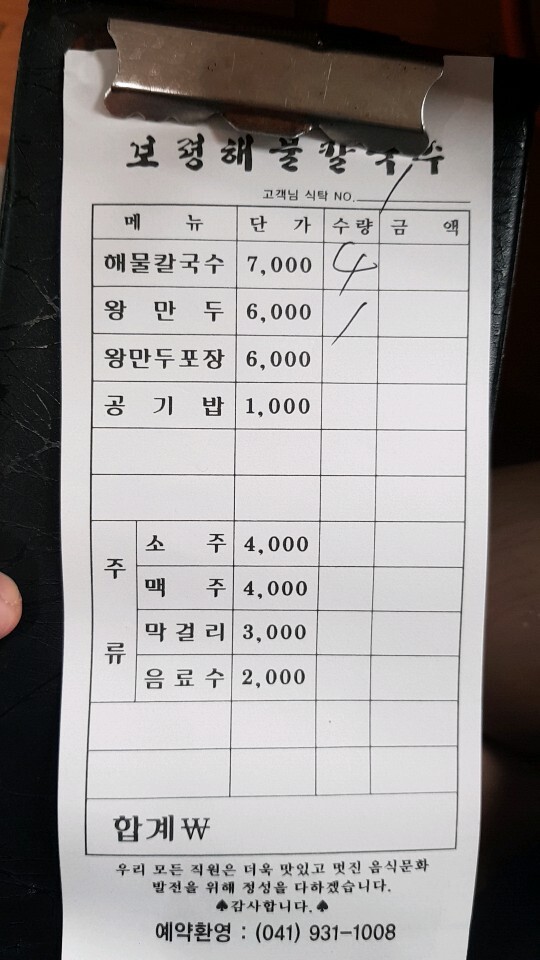 보령해물칼국수
고객님 식탁 NO. /
메 뉴 단 가 수량 금 액
해물칼국수 7,000 4
왕 만 두 6,000 /
왕만두포장 6,000
공 기 밥 1,000
주류
소 주 4,000
맥 주 4,000
막걸리 3,000
음료수 2,000
합계₩
우리 모든 직원은 더욱 맛있고 멋진 음식문화
발전을 위해 정성을 다하겠습니다.
♠감사합니다.♠
예약환영 : (041) 931-1008